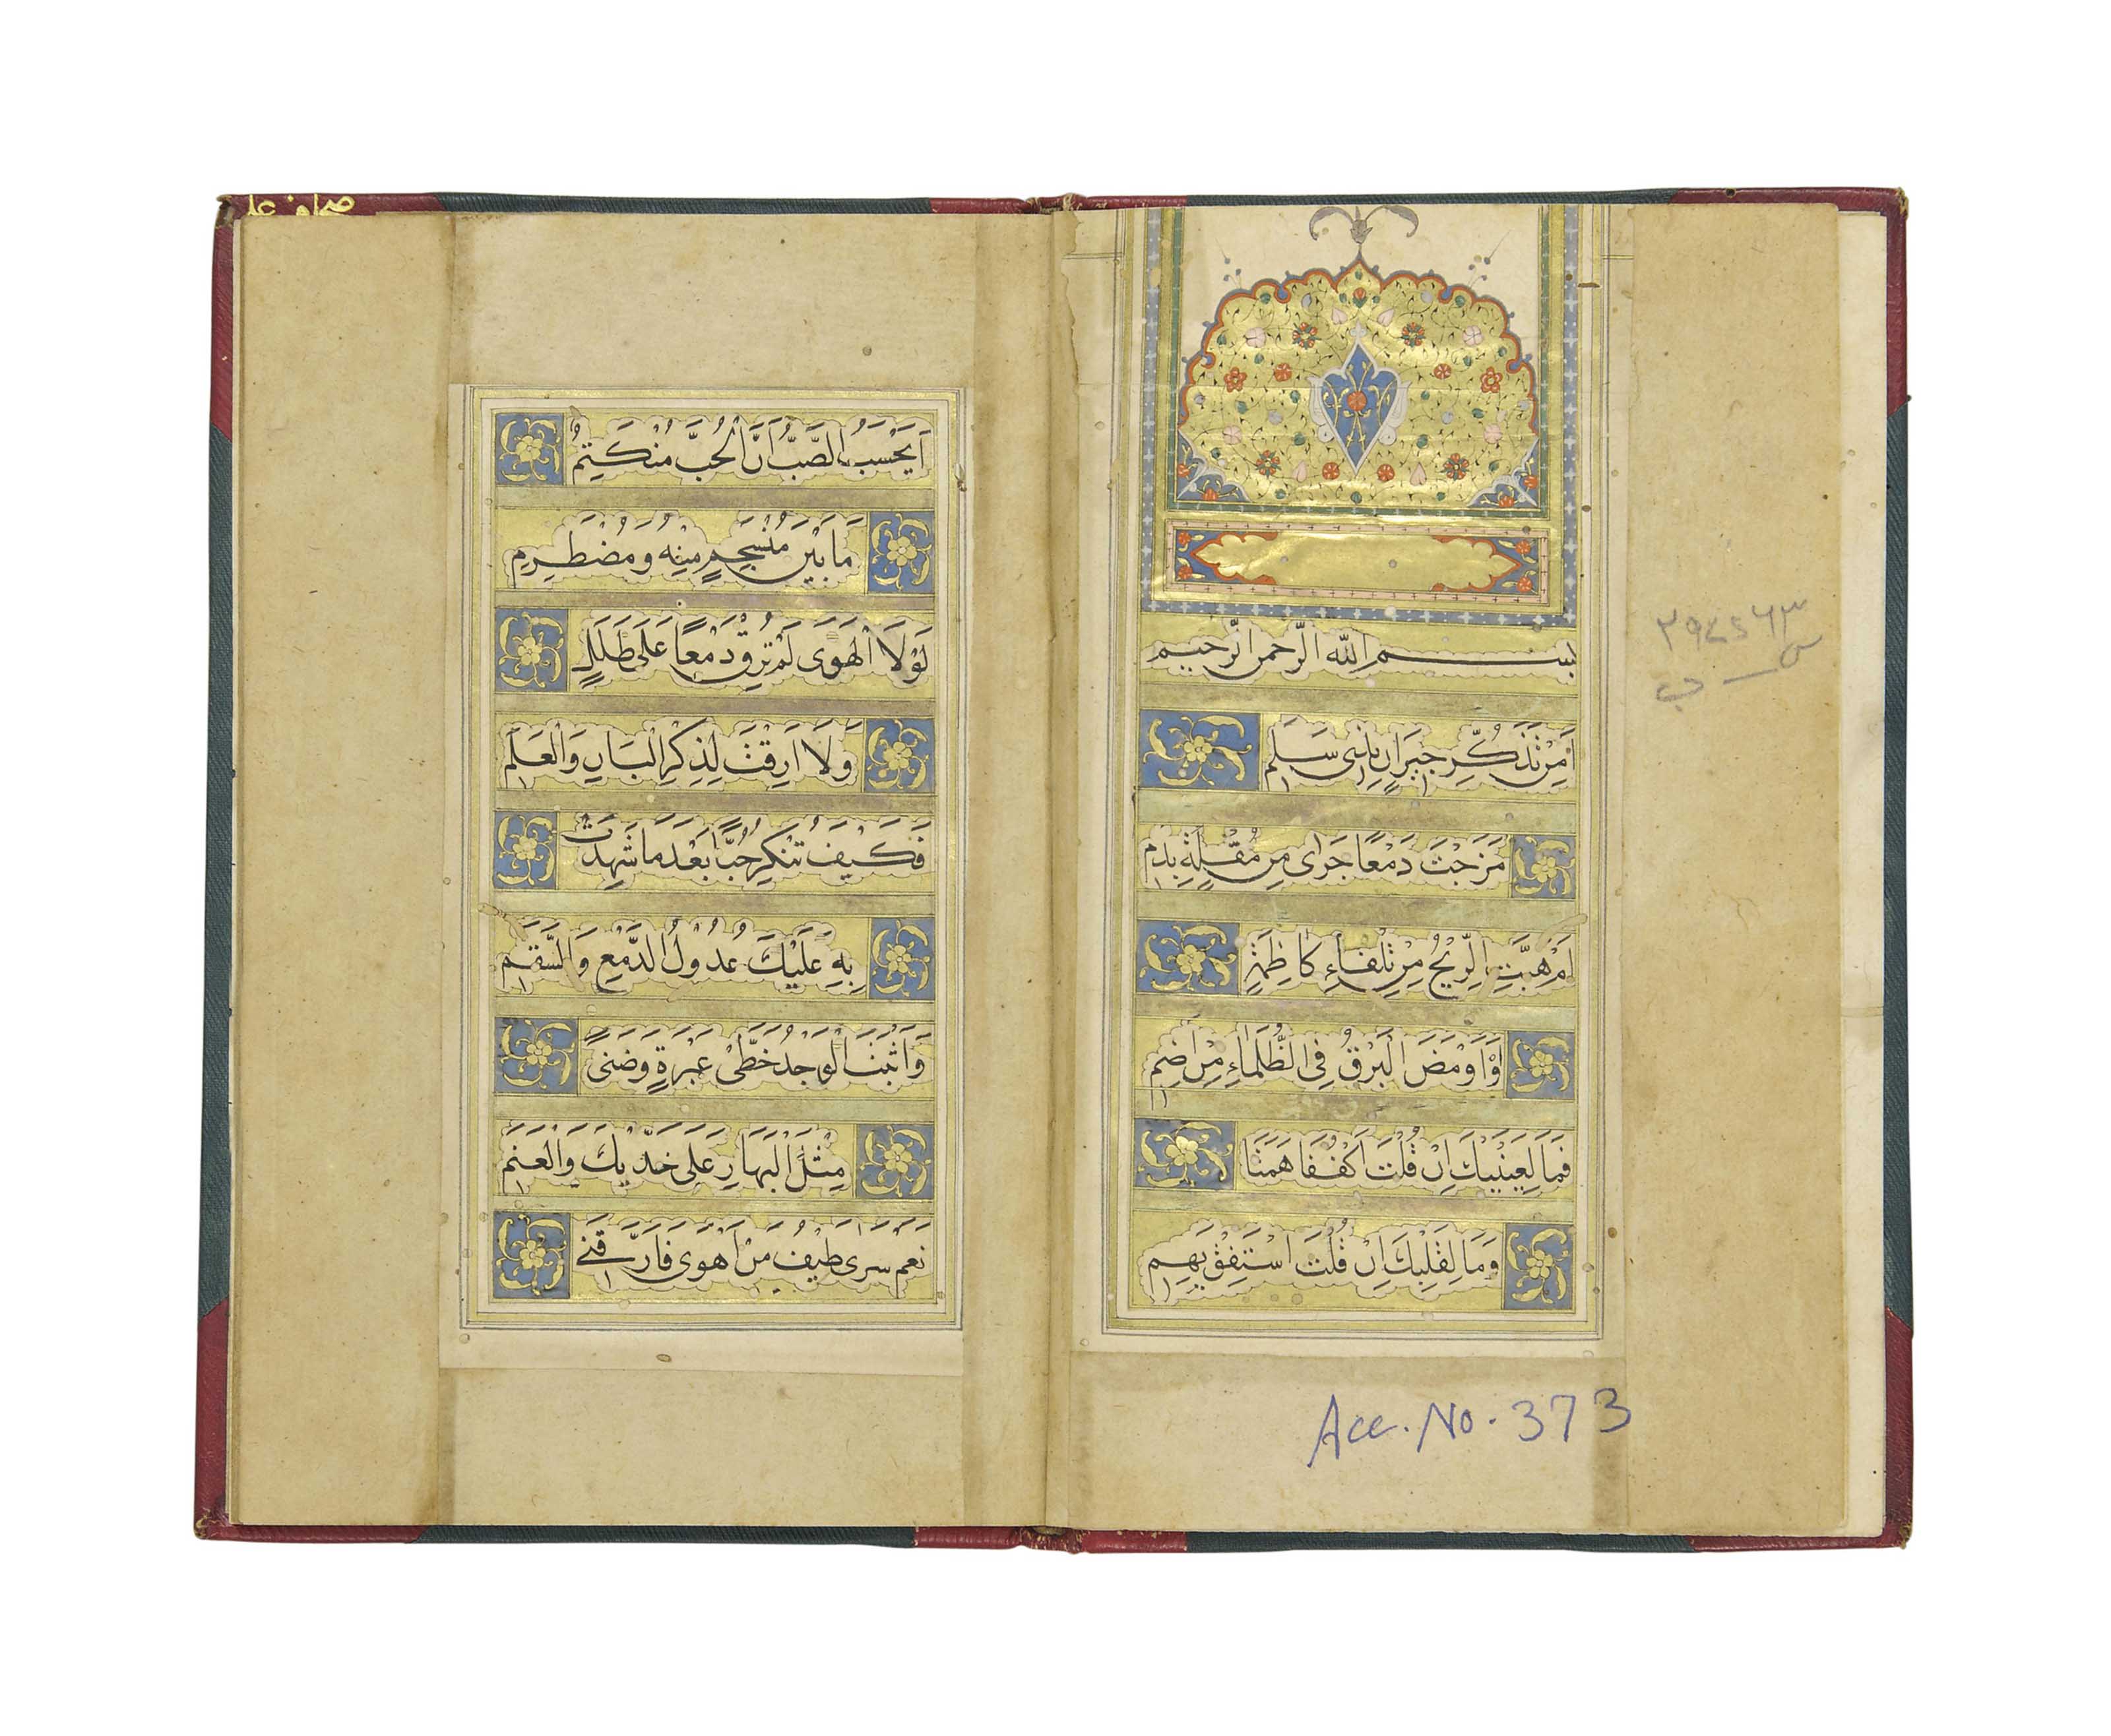 بسم الله الرحمن الرحيم
اَمِنْ تَذَكُّرِ جِيرَانٍ بِذِي سَلَمِ
مَزَجْتَ دَمْعًا جَرٰى مِنْ مُقْلَةٍ بِدَمِ
اَمْ هَبَّتِ الرِّيْحُ مِنْ تِلْقَاءِ كَاظِمَةٍ
وَاَوْمَضَ الْبَرْقُ فِي الظَّلْمَاءِ مِنْ اِضَمِ
فَمَا لِعَيْنَيْكَ اِنْ قُلْتَ اكْفُفَا هَمَتَا
وَمَا لِقَلْبِكَ اِنْ قُلْتَ اسْتَفِقْ يَهِمِ
Acc. No. 373
اَيَحْسَبُ الصَّبُّ اَنَّ الْحُبَّ مُنْكَتِمٌ
مَا بَيْنَ مُنْسَجِمٍ مِنْهُ وَمُضْطَرِمِ
لَوْلَا الْهَوَى لَمْ تُرِقْ دَمْعًا عَلَى طَلَلٍ
وَلَا اَرِقْتَ لِذِكْرِ الْبَانِ وَالْعَلَمِ
فَكَيْفَ تُنْكِرُ حُبًّا بَعْدَ مَا شَهِدَتْ
بِهِ عَلَيْكَ عُدُولُ الدَّمْعِ وَالسَّقَمِ
وَاَثْبَتَ الْوَجْدُ خَطَّيْ عَبْرَةٍ وَضَنًى
مِثْلَ الْبَهَارِ عَلَى خَدَّيْكَ وَالْعَنَمِ
نَعَمْ سَرَى طَيْفُ مَنْ اَهْوَى فَاَرَّقَنِي